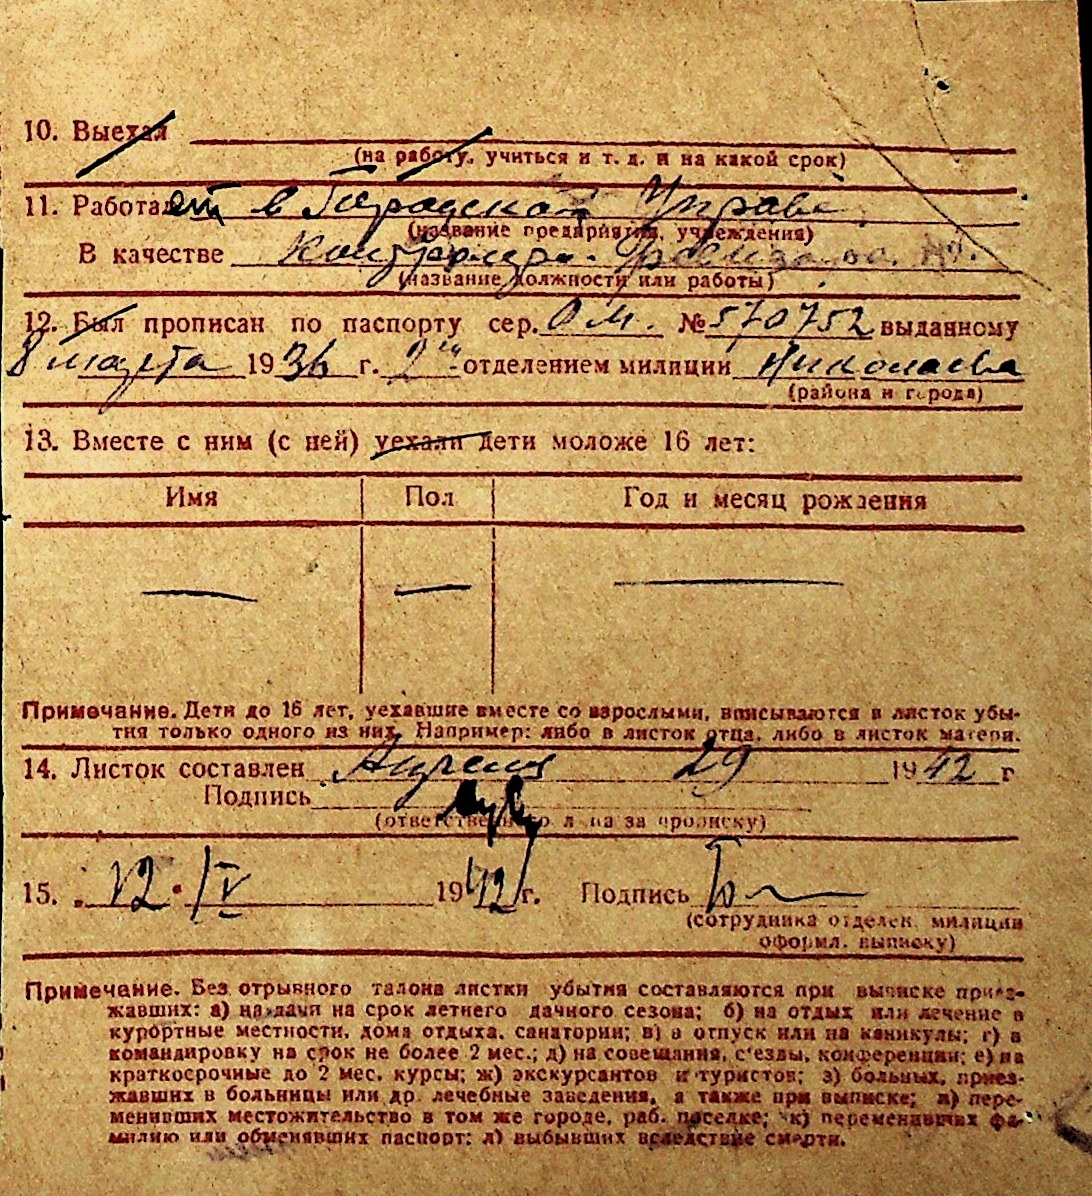 10. Выехал
(на работу, учиться и т. д. и на какой срок)
11. Работает в Городской Управе
(название предприятия, учреждения)
В качестве контролера-
(название должности или работы)
12. Был прописан по паспорту сер. О М. № 570752 выданному
8 марта 1936 г. 2м отделением милиции Николаева
(района и города)
13. Вместе с ним (с ней) уехали дети моложе 16 лет:
Имя Пол Год и месяц рождения
— — —
Примечание. Дети до 16 лет, уехавшие вместе со взрослыми, вписываются в листок убы-
тия только одного из них. Например: либо в листок отца, либо в листок матери.
14. Листок составлен Апреля 29 1942 г
Подпись
(ответственного лица за прописку)
15. 12. IV 1942 г. Подпись
(сотрудника отделен. милиции
оформл. выписку)
Примечание. Без отрывного талона листки убытия составляются при выписке приез-
жавших: а) на дачи на срок летнего дачного сезона; б) на отдых или лечение в
курортные местности, дома отдыха, санатории; в) в отпуск или на каникулы; г) в
командировку на срок не более 2 мес.; д) на совещания, с'езды, конференции; е) на
краткосрочные до 2 мес. курсы; ж) экскурсантов и туристов; з) больных, приез-
жавших в больницы или др. лечебные заведения, а также при выписке; и) пере-
менивших местожительство в том же городе, раб. поселке; к) переменивших фа-
милию или обменявших паспорт; л) выбывших вследствие смерти.